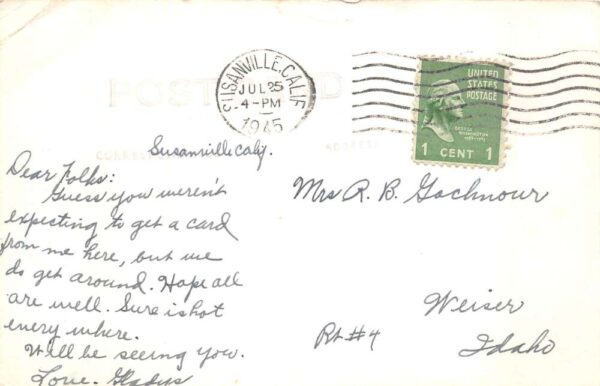 POST CARD
SUSANVILLE, CALIF.
JUL 25
4-PM
1945
UNITED
STATES
POSTAGE
GEORGE
WASHINGTON
1 CENT 1
CORRESPONDENCE
ADDRESS
Susanville Calif.
Dear Folks:
Guess you weren't
expecting to get a card
from me here, but we
do get around. Hope all
are well. Sure is hot
every where.
Will be seeing you.
Love. Gladys
Mrs R. B. Gochnour
Weiser
Rt #4
Idaho